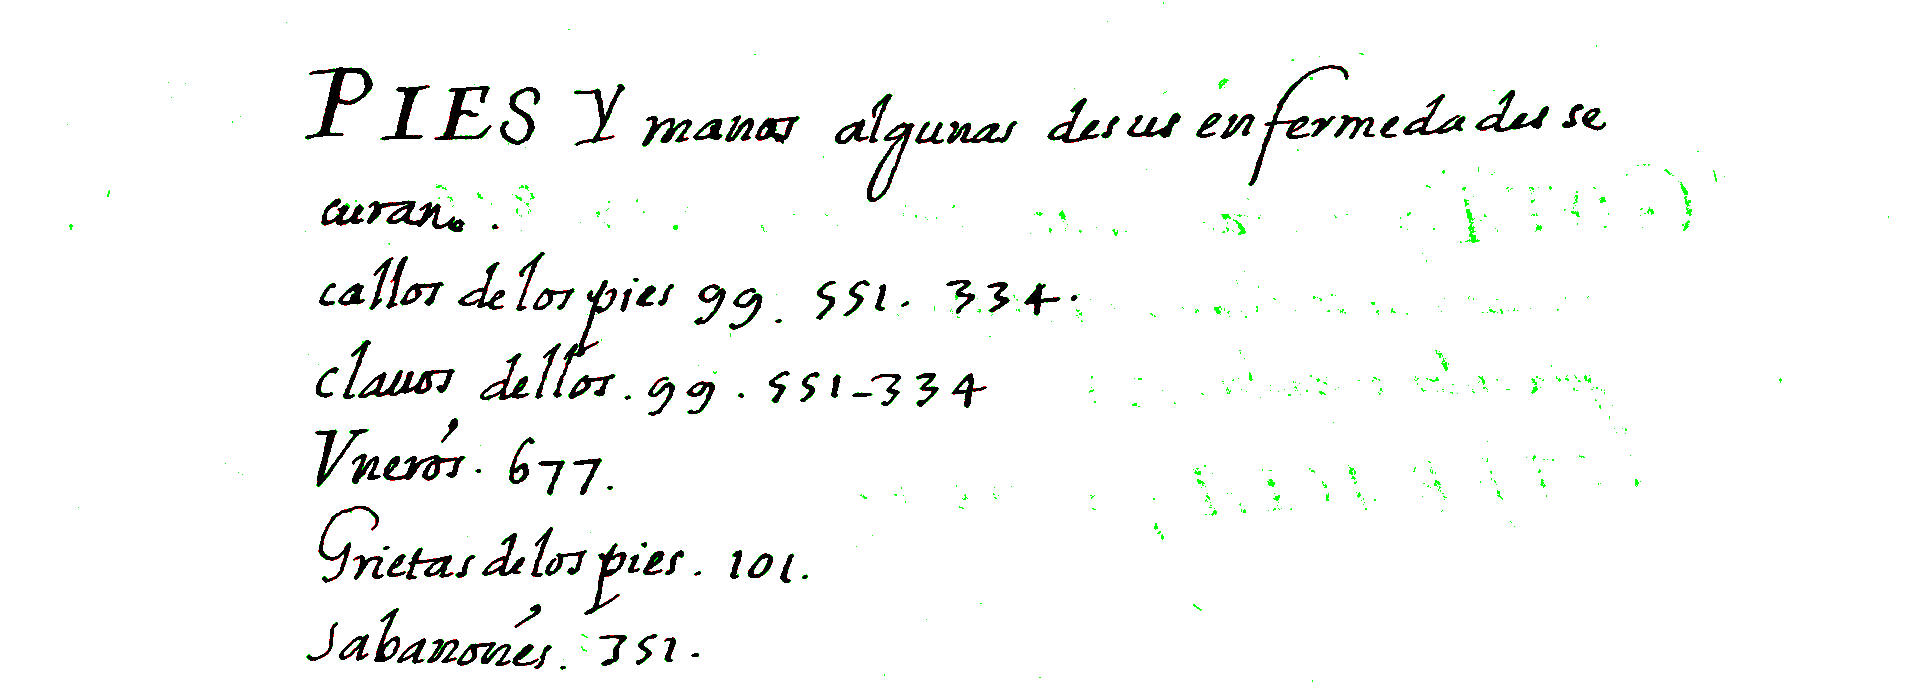 PIES Y manos algunas desus enfermedades se
curan.
callos de los pies 99. 551. 334.
clauos dellos. 99. 551-334
Vnerós. 677.
Grietas de los pies. 101.
sabanonés. 351.